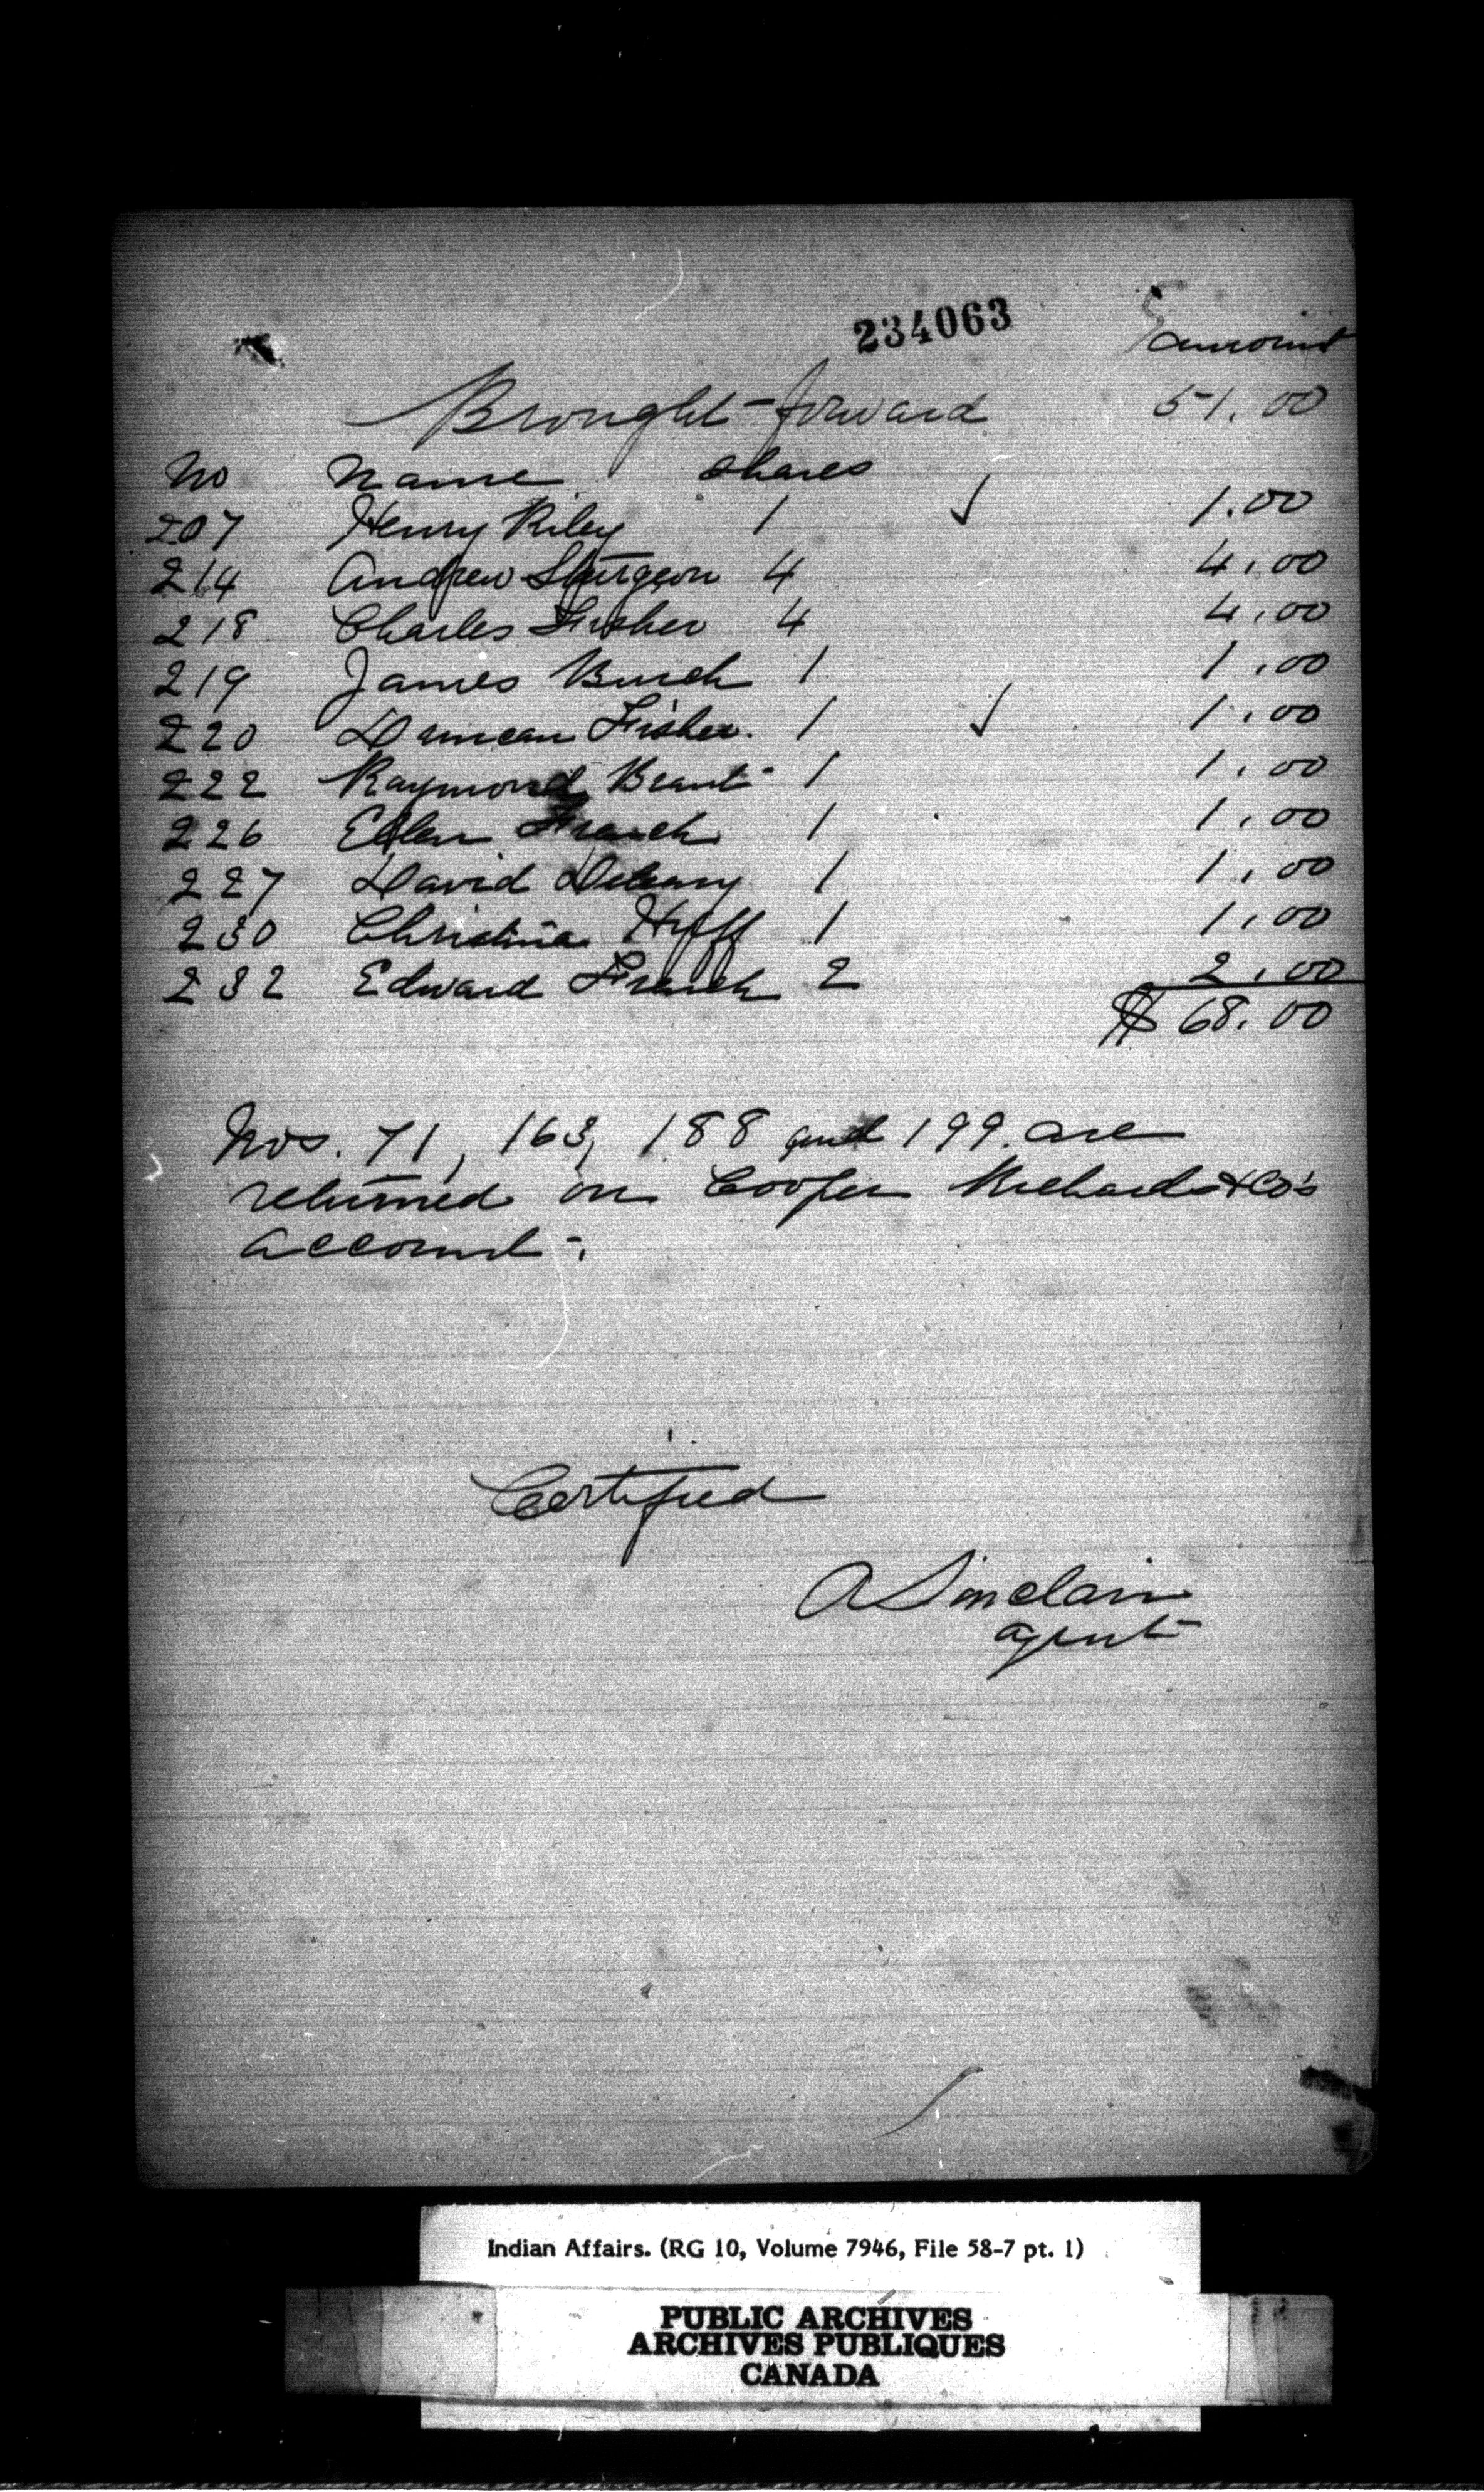 234063
amount
Brought forward 51.00
No Name shares
207 Henry Riley 1 ✓ 1.00
214 Andrew Sturgeon 4 4.00
218 Charles Fisher 4 4.00
219 James Burch 1 1.00
220 Duncan Fisher. 1 ✓ 1.00
222 Raymond Brant 1 1.00
226 Ellen French 1 1.00
227 David Deleary 1 1.00
230 Christina Huff 1 1.00
232 Edward French 2 2.00
$68.00
Nos. 71, 163, 188 and 199. are
returned on Cooper Richards & Co's
account.
Certified
A Sinclair
agent
Indian Affairs. (RG 10, Volume 7946, File 58-7 pt. 1)
PUBLIC ARCHIVES
ARCHIVES PUBLIQUES
CANADA